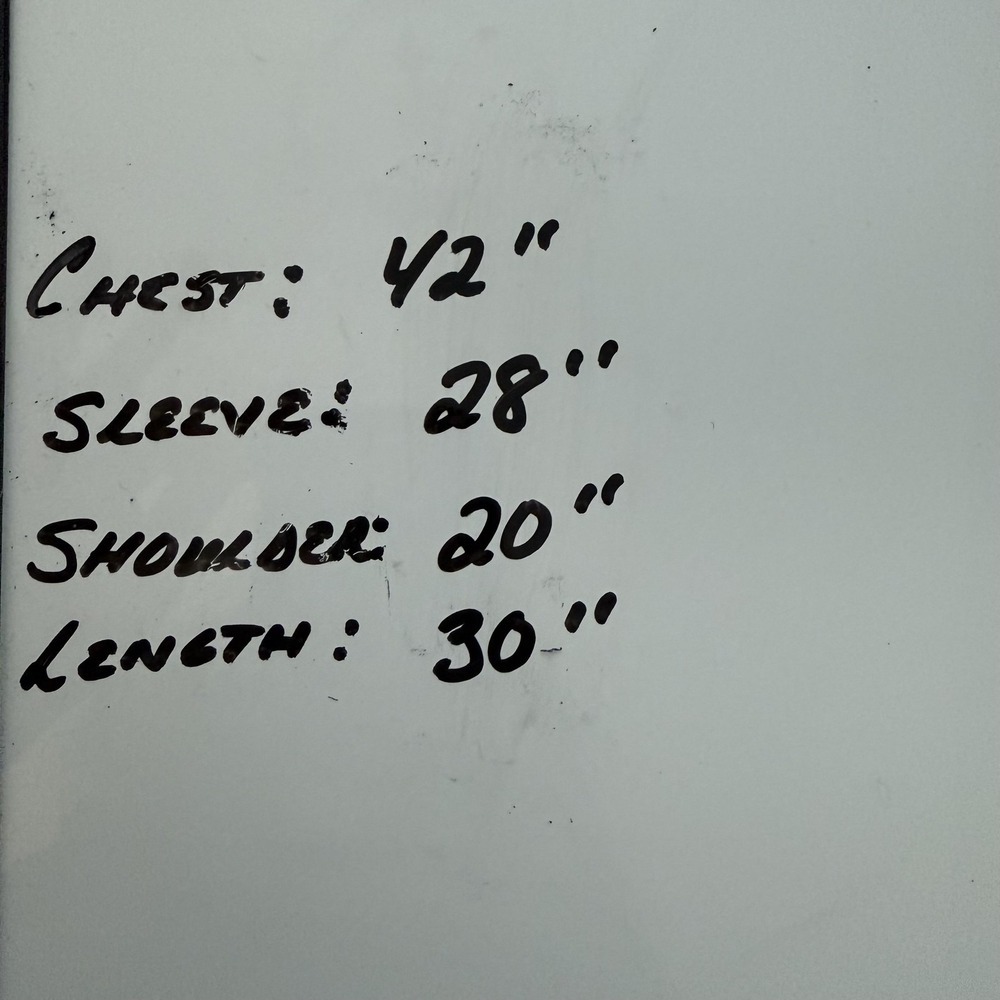 CHEST: 42"
SLEEVE: 28"
SHOULDER: 20"
LENGTH: 30"